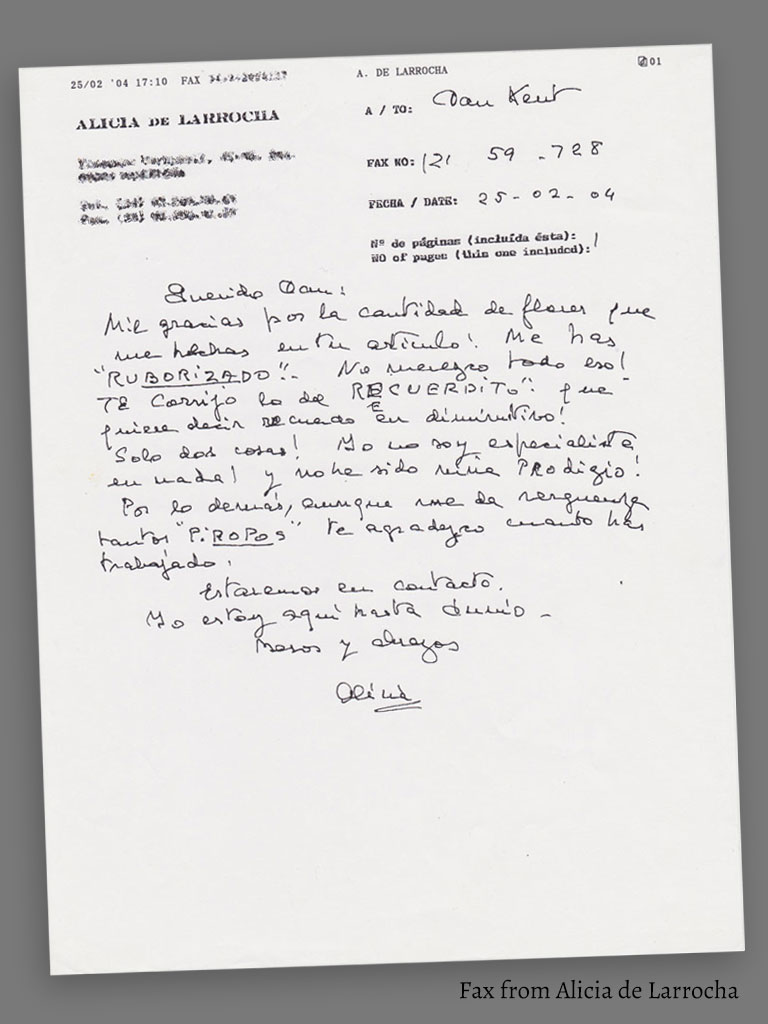 25/02 '04 17:10 FAX
A. DE LARROCHA
01
ALICIA DE LARROCHA
A / TO: Dan Kent
FAX NO: 59-728
FECHA / DATE: 25-02-04
Nº de páginas (incluída ésta): 1
NO of pages (this one included):
Querido Dan:
Mil gracias por la cantidad de flores que
me hechas en tu artículo! Me has
"RUBORIZADO".- No merezco todo eso!
TE Corrijo lo de RECUERDITO": que
quiere decir recuerdo en diminutivo!
Solo dos cosas! Yo no soy especialista
en nada! y no he sido niña PRODIGIO!
Por lo demás, aunque me da verguenza
tantos "PIROPOS" te agradezco cuanto has
trabajado.
Estaremos en contacto.
Yo estoy aquí hasta Junio -
Besos y abrazos
Alicia
Fax from Alicia de Larrocha